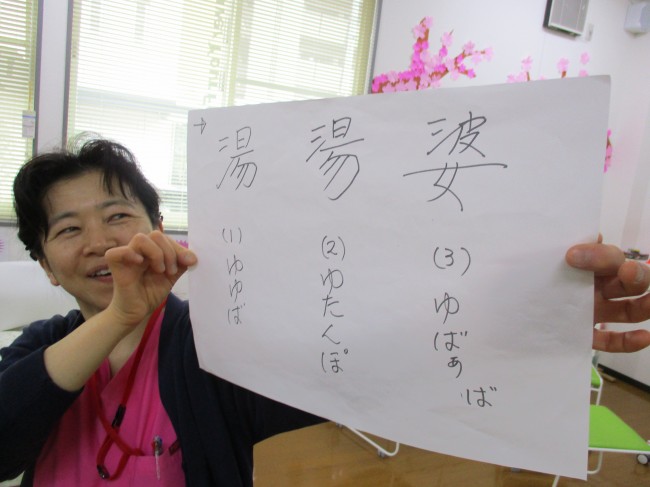 →湯湯婆
(1)ゆゆば
(2)ゆたんぽ
(3)ゆばぁば